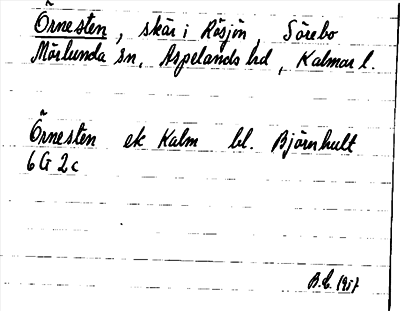 Örnesten, skär i Rösjön, Sörebo
Mörlunda sn, Aspelands hd, Kalmar l.
Örnesten ek Kalm bl. Björnhult
6G2c